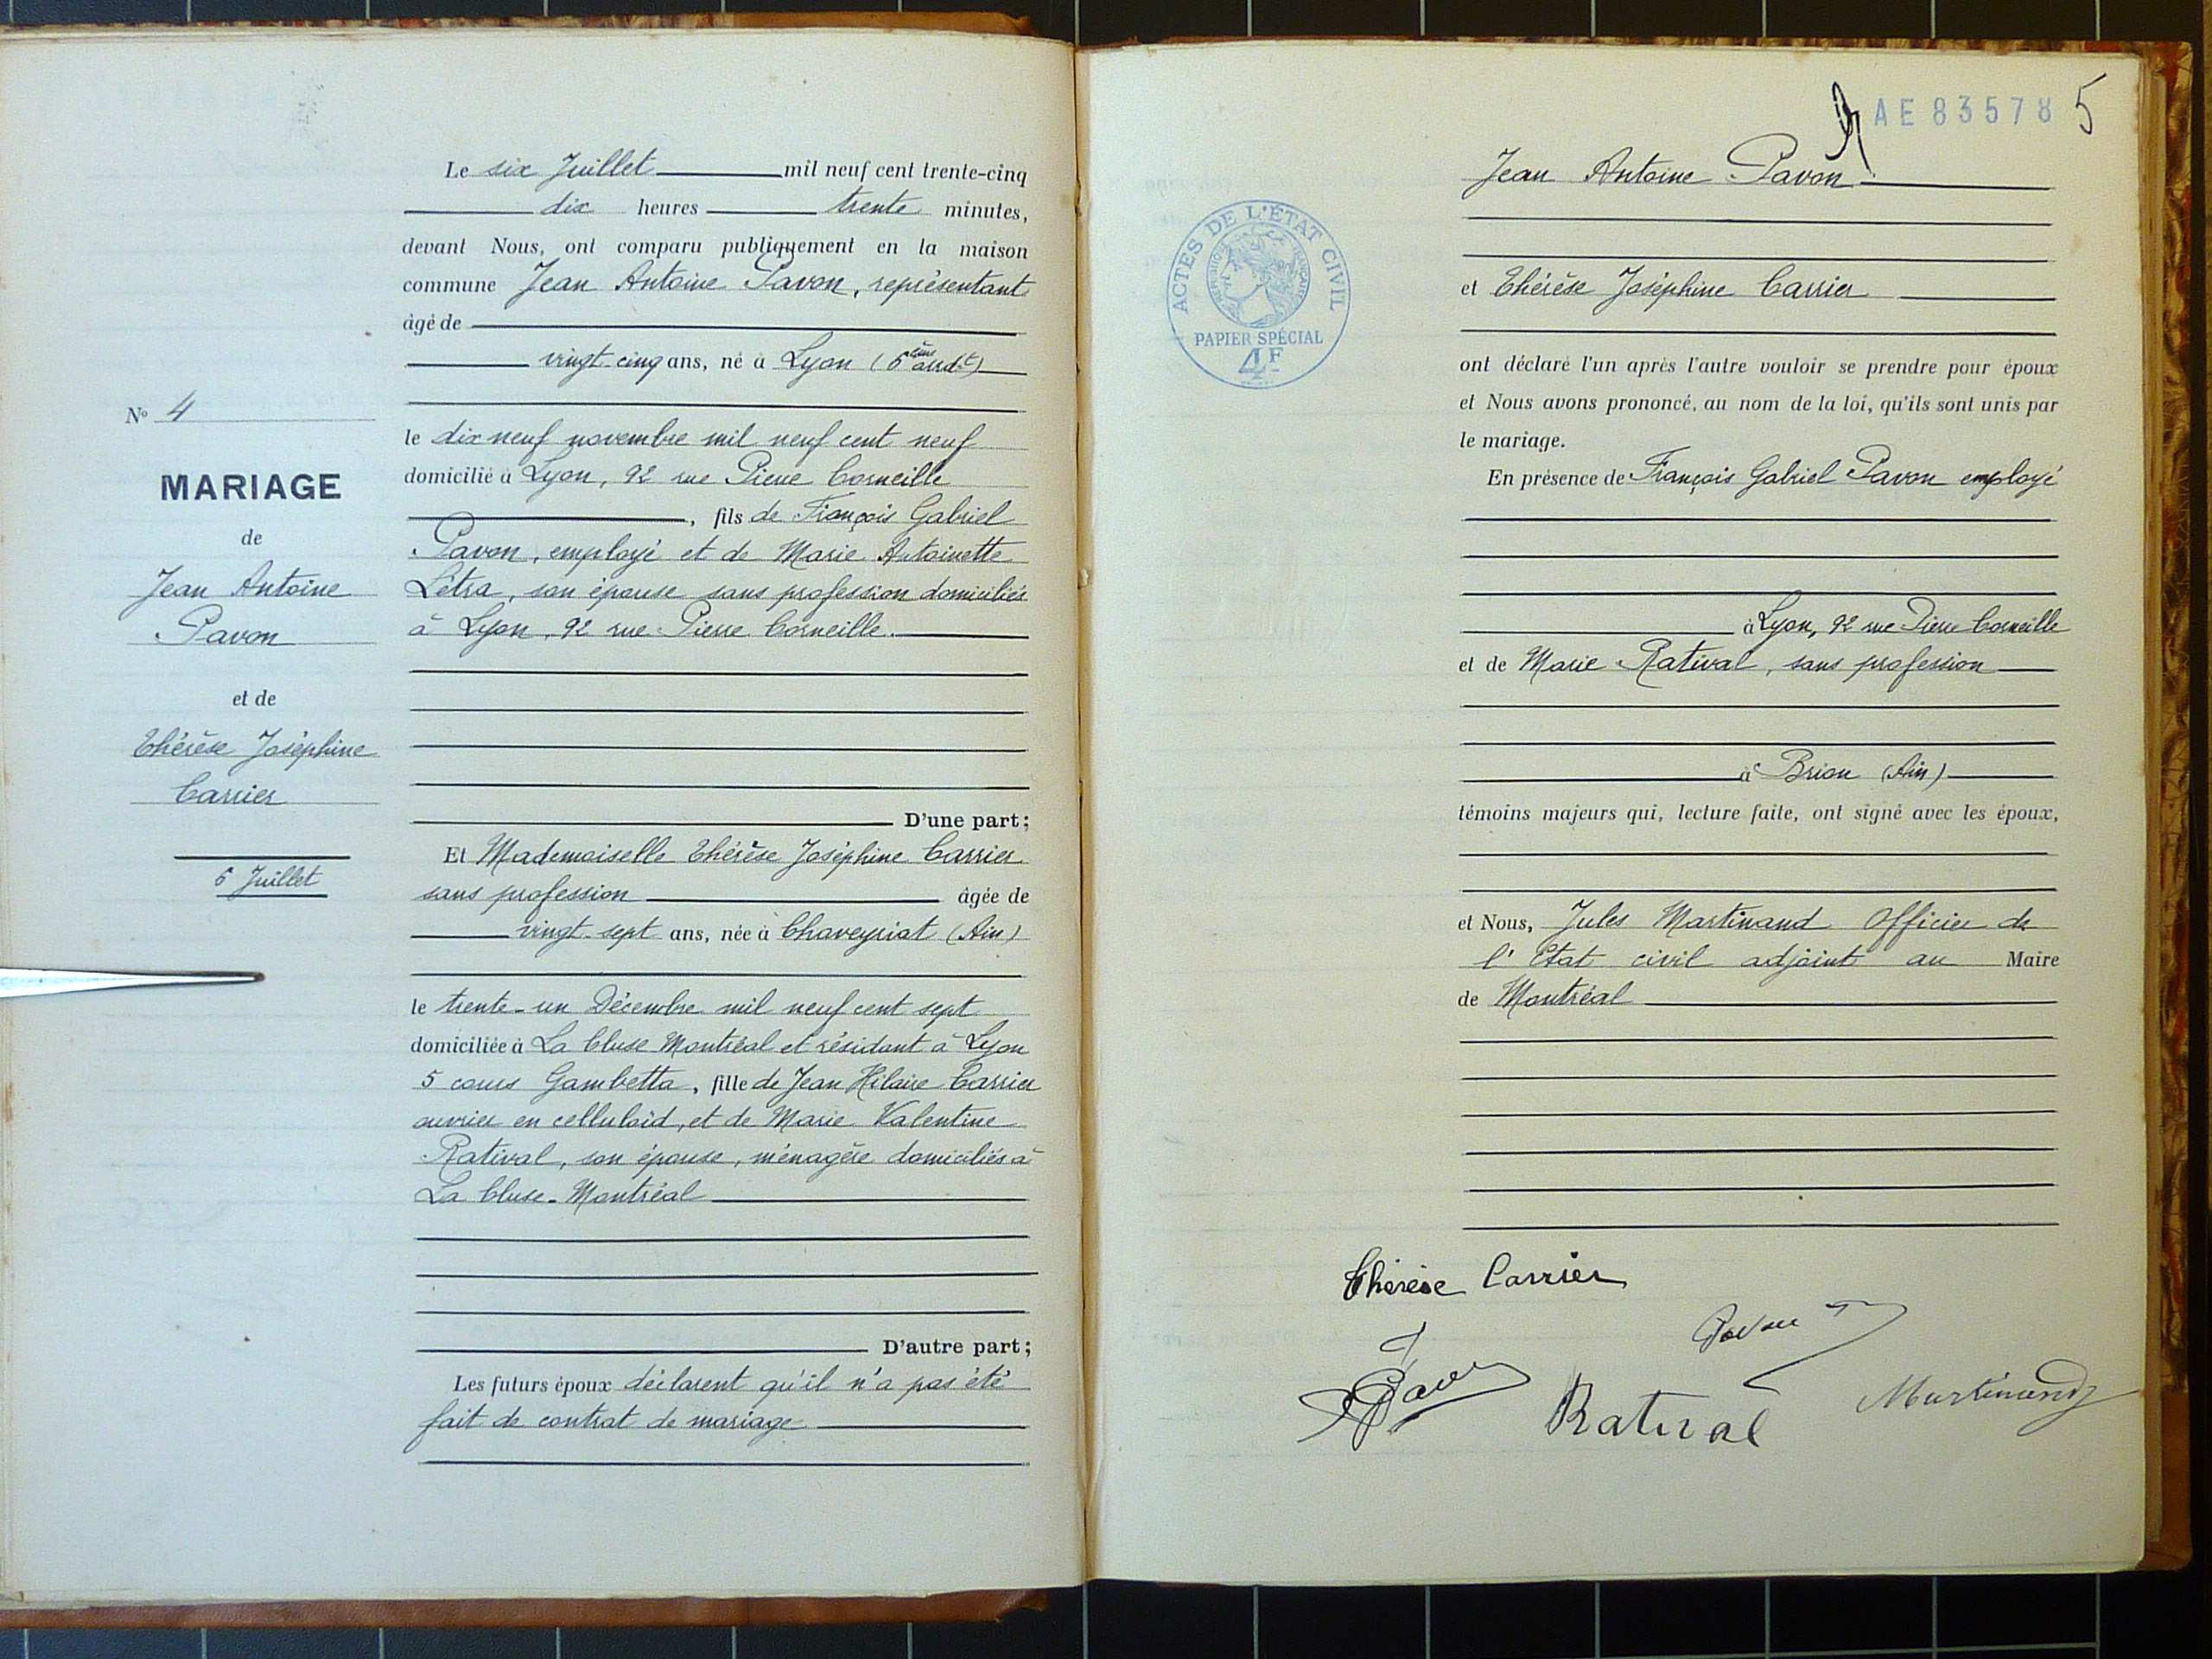 Le six Juillet mil neuf cent trente-cinq
dix heures trente minutes,
devant Nous, ont comparu publiquement en la maison
commune Jean Antoine Pavon, représentant
âgé de
vingt-cinq ans, né à Lyon (6ème arrdt)
le dix neuf novembre mil neuf cent neuf
domicilié à Lyon, 92 rue Pierre Corneille
, fils de François Gabriel
Pavon, employé et de Marie Antoinette
Létra, son épouse sans profession domiciliés
à Lyon, 92 rue Pierre Corneille.
D'une part;
Et Mademoiselle Thérèse Joséphine Carrier
sans profession âgée de
vingt-sept ans, née à Chaveyriat (Ain)
le trente-un Décembre mil neuf cent sept
domiciliée à La Cluse Montréal et résidant à Lyon
5 cours Gambetta, fille de Jean Hilaire Carrier
ouvrier en celluloïd, et de Marie Valentine
Ratival, son épouse, ménagère domiciliés à
La Cluse-Montréal
D'autre part;
Les futurs époux déclarent qu'il n'a pas été
fait de contrat de mariage
No 4
MARIAGE
de
Jean Antoine
Pavon
et de
Thérèse Joséphine
Carrier
6 Juillet
AE 83578 5
ACTES DE L'ÉTAT CIVIL
RÉPUBLIQUE FRANÇAISE
PAPIER SPÉCIAL
4F
Jean Antoine Pavon
et Thérèse Joséphine Carrier
ont déclaré l'un après l'autre vouloir se prendre pour époux
et Nous avons prononcé, au nom de la loi, qu'ils sont unis par
le mariage.
En présence de François Gabriel Pavon employé
à Lyon, 92 rue Pierre Corneille
et de Marie Ratival, sans profession
à Brion (Ain)
témoins majeurs qui, lecture faite, ont signé avec les époux,
et Nous, Jules Martinand Officier de
l'Etat civil adjoint au Maire
de Montréal
Thérèse Carrier
Pavon
Pavon
Ratival
Martinand